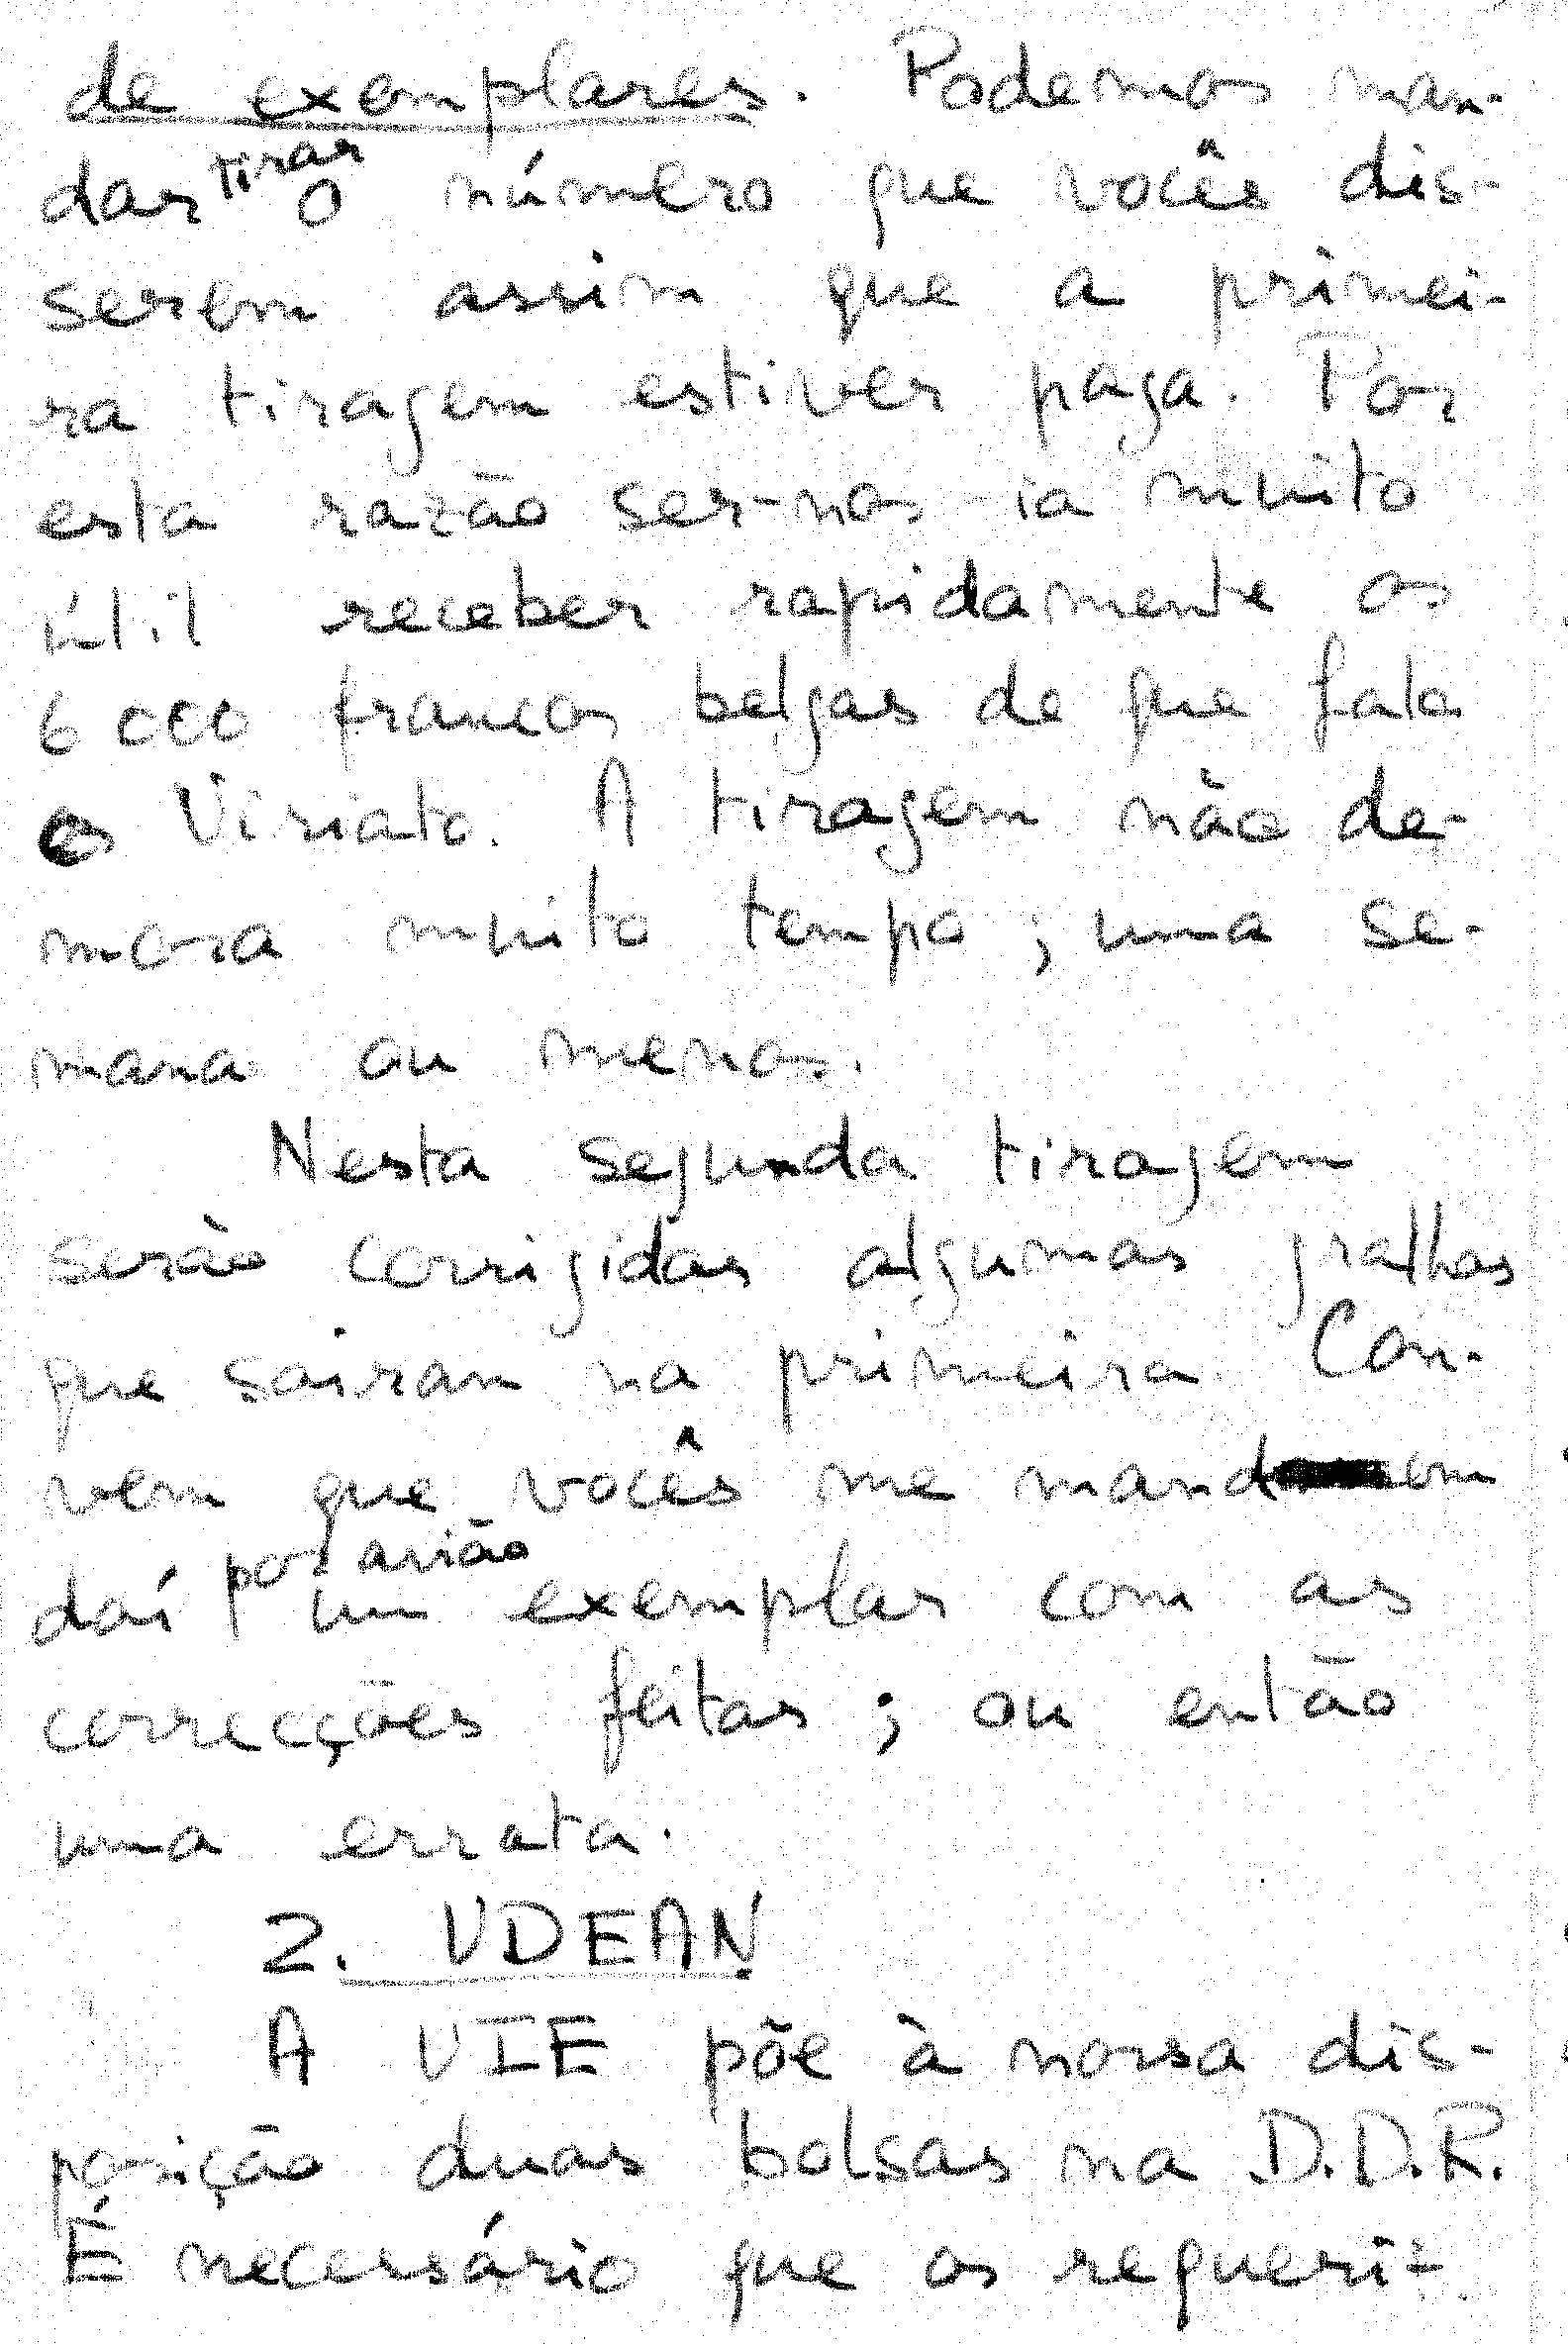 de exemplares. Podemos man-
dar tirar o número que vocês dis-
serem assim que a primei-
ra tiragem estiver paga. Por
esta razão ser-nos-ia muito
útil receber rapidamente os
6 000 francos belgas de que fala
o Viriato. A tiragem não de-
mora muito tempo ; uma se-
mana ou menos.
Nesta segunda tiragem
serão corrigidas algumas gralhas
que sairam na primeira. Con-
vem que vocês me mandem
daí por avião um exemplar com as
correcções feitas ; ou então
uma errata.
2. UDEAN
A UIE põe à nossa dis-
posição duas bolsas na D.D.R.
É necessário que os requeri-